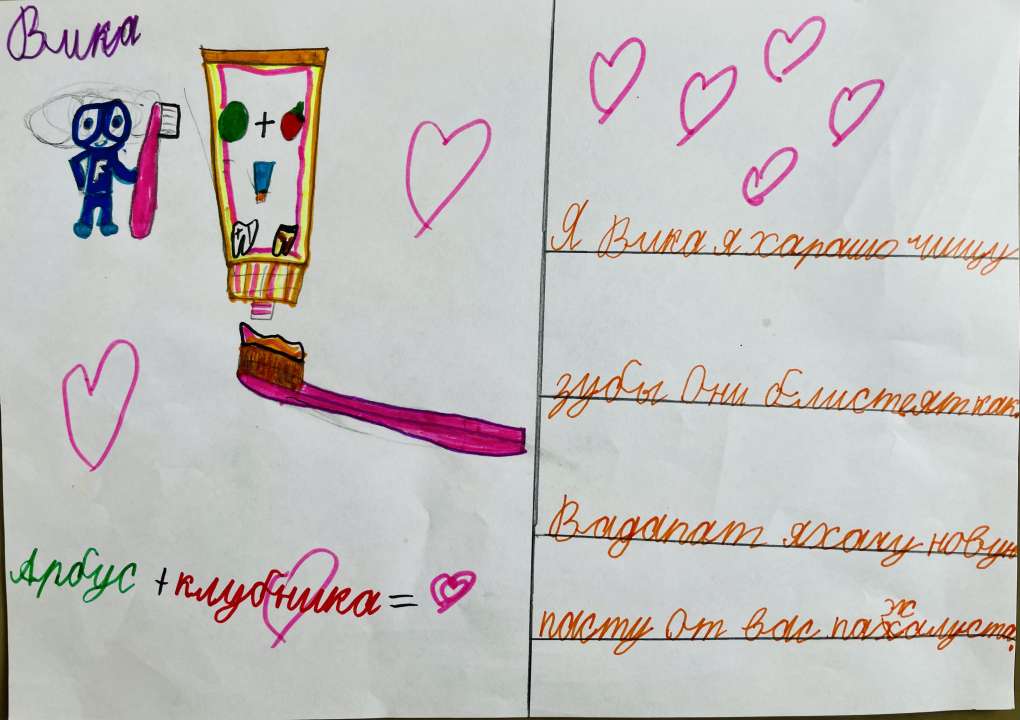 Вика
Арбус + клубника =
Я Вика я харашо чищу
зубы Они блистеят как
Вадапат я хачу новую
пасту От вас пажалуста.